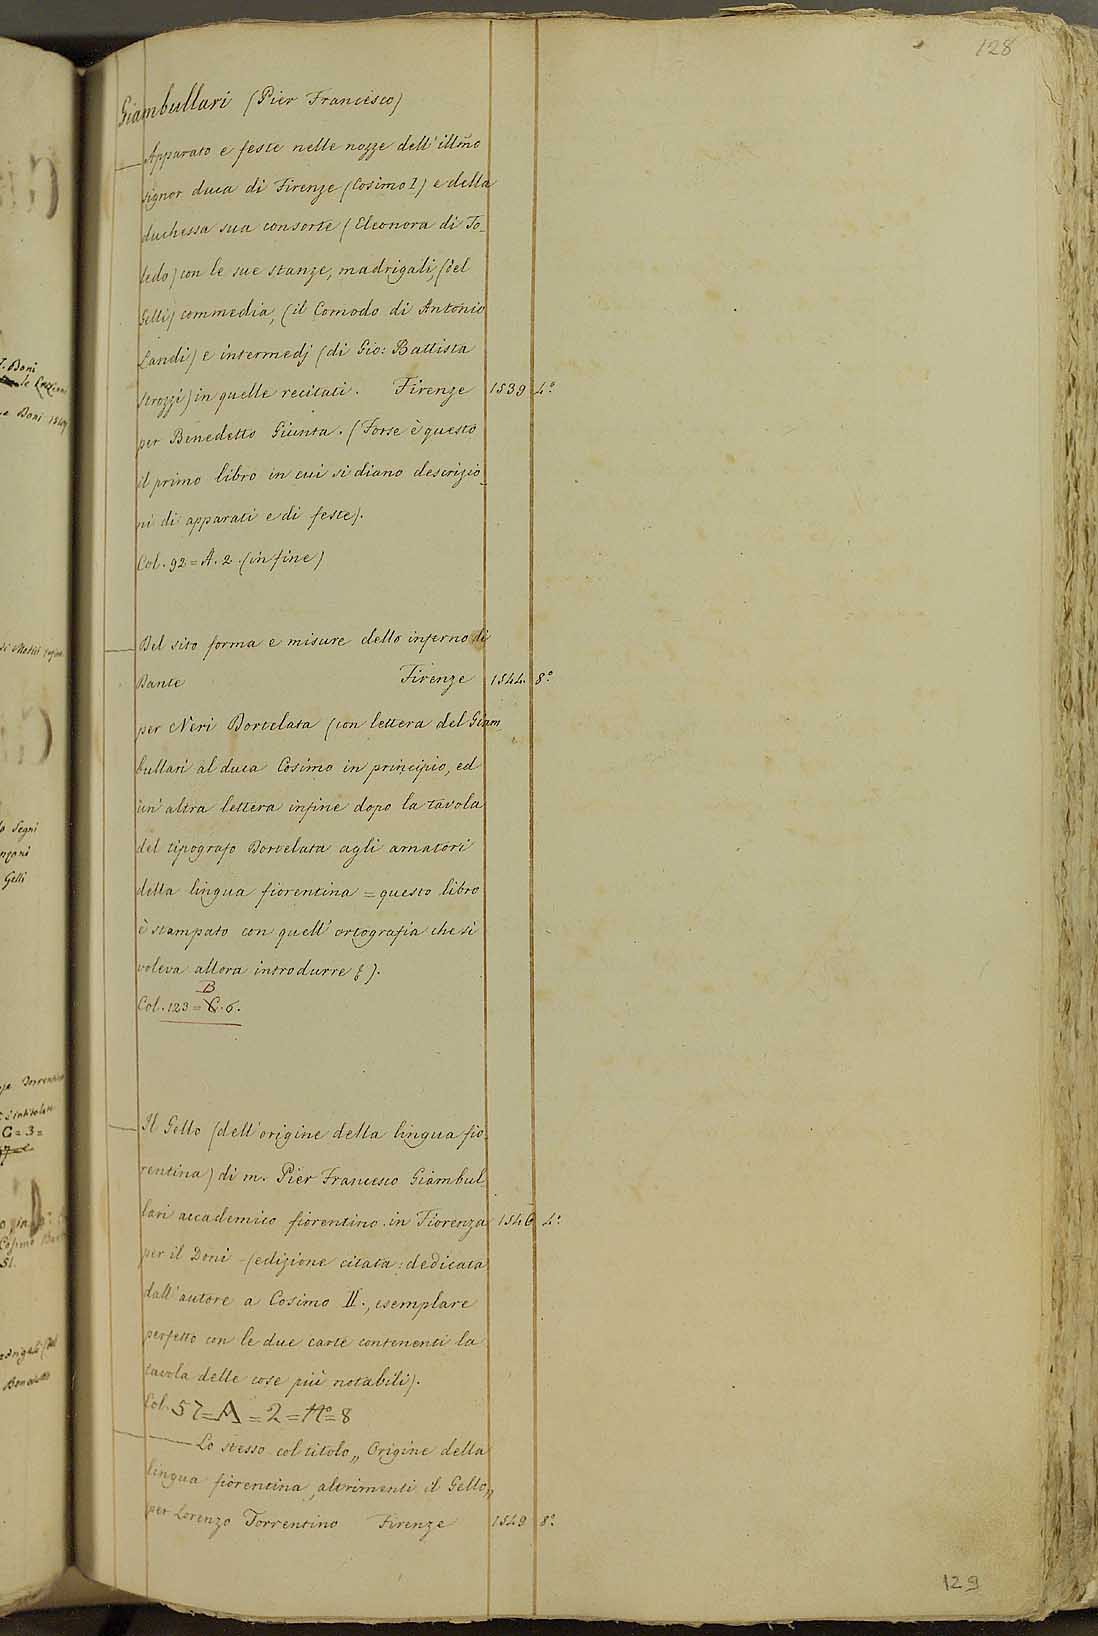 128
Giambullari (Pier Francesco)
Apparato e feste nelle nozze dell' illmo
signor duca di Firenze (Cosimo I) e della
duchessa sua consorte (Eleonora di To-
ledo) con le sue stanze, madrigali, (del
Gelli) commedia, (il Comodo di Antonio
Landi) e intermedj (di Gio: Battista
Strozzi) in quelle recitati. Firenze 1539 4.o
per Benedetto Giunta. (Forse è questo
il primo libro in cui si diano descrizio-
ni di apparati e di feste).
Col. 92 = A. 2. (in fine)
Del sito forma e misure dello inferno di
Dante Firenze 1544. 8.o
per Neri Dortelata (con lettera del Giam-
bullari al duca Cosimo in principio, ed
un' altra lettera infine dopo la tavola
del tipografo Dortelata agli amatori
della lingua fiorentina = questo libro
è stampato con quell' ortografia che si
voleva allora introdurre &).
B
Col. 123 = C. 6.
Il Gello (dell' origine della lingua fio-
rentina) di m. Pier Francesco Giambul-
lari accademico fiorentino. in Fiorenza 1546 4.o
per il Doni - (edizione citata: dedicata
dall' autore a Cosimo II., esemplare
perfetto con le due carte contenenti la
tavola delle cose più notabili).
Col. 57 = A = 2 = No = 8
Lo stesso col titolo „ Origine della
lingua fiorentina, altrimenti il Gello„
per Lorenzo Torrentino Firenze 1549 8.o
129